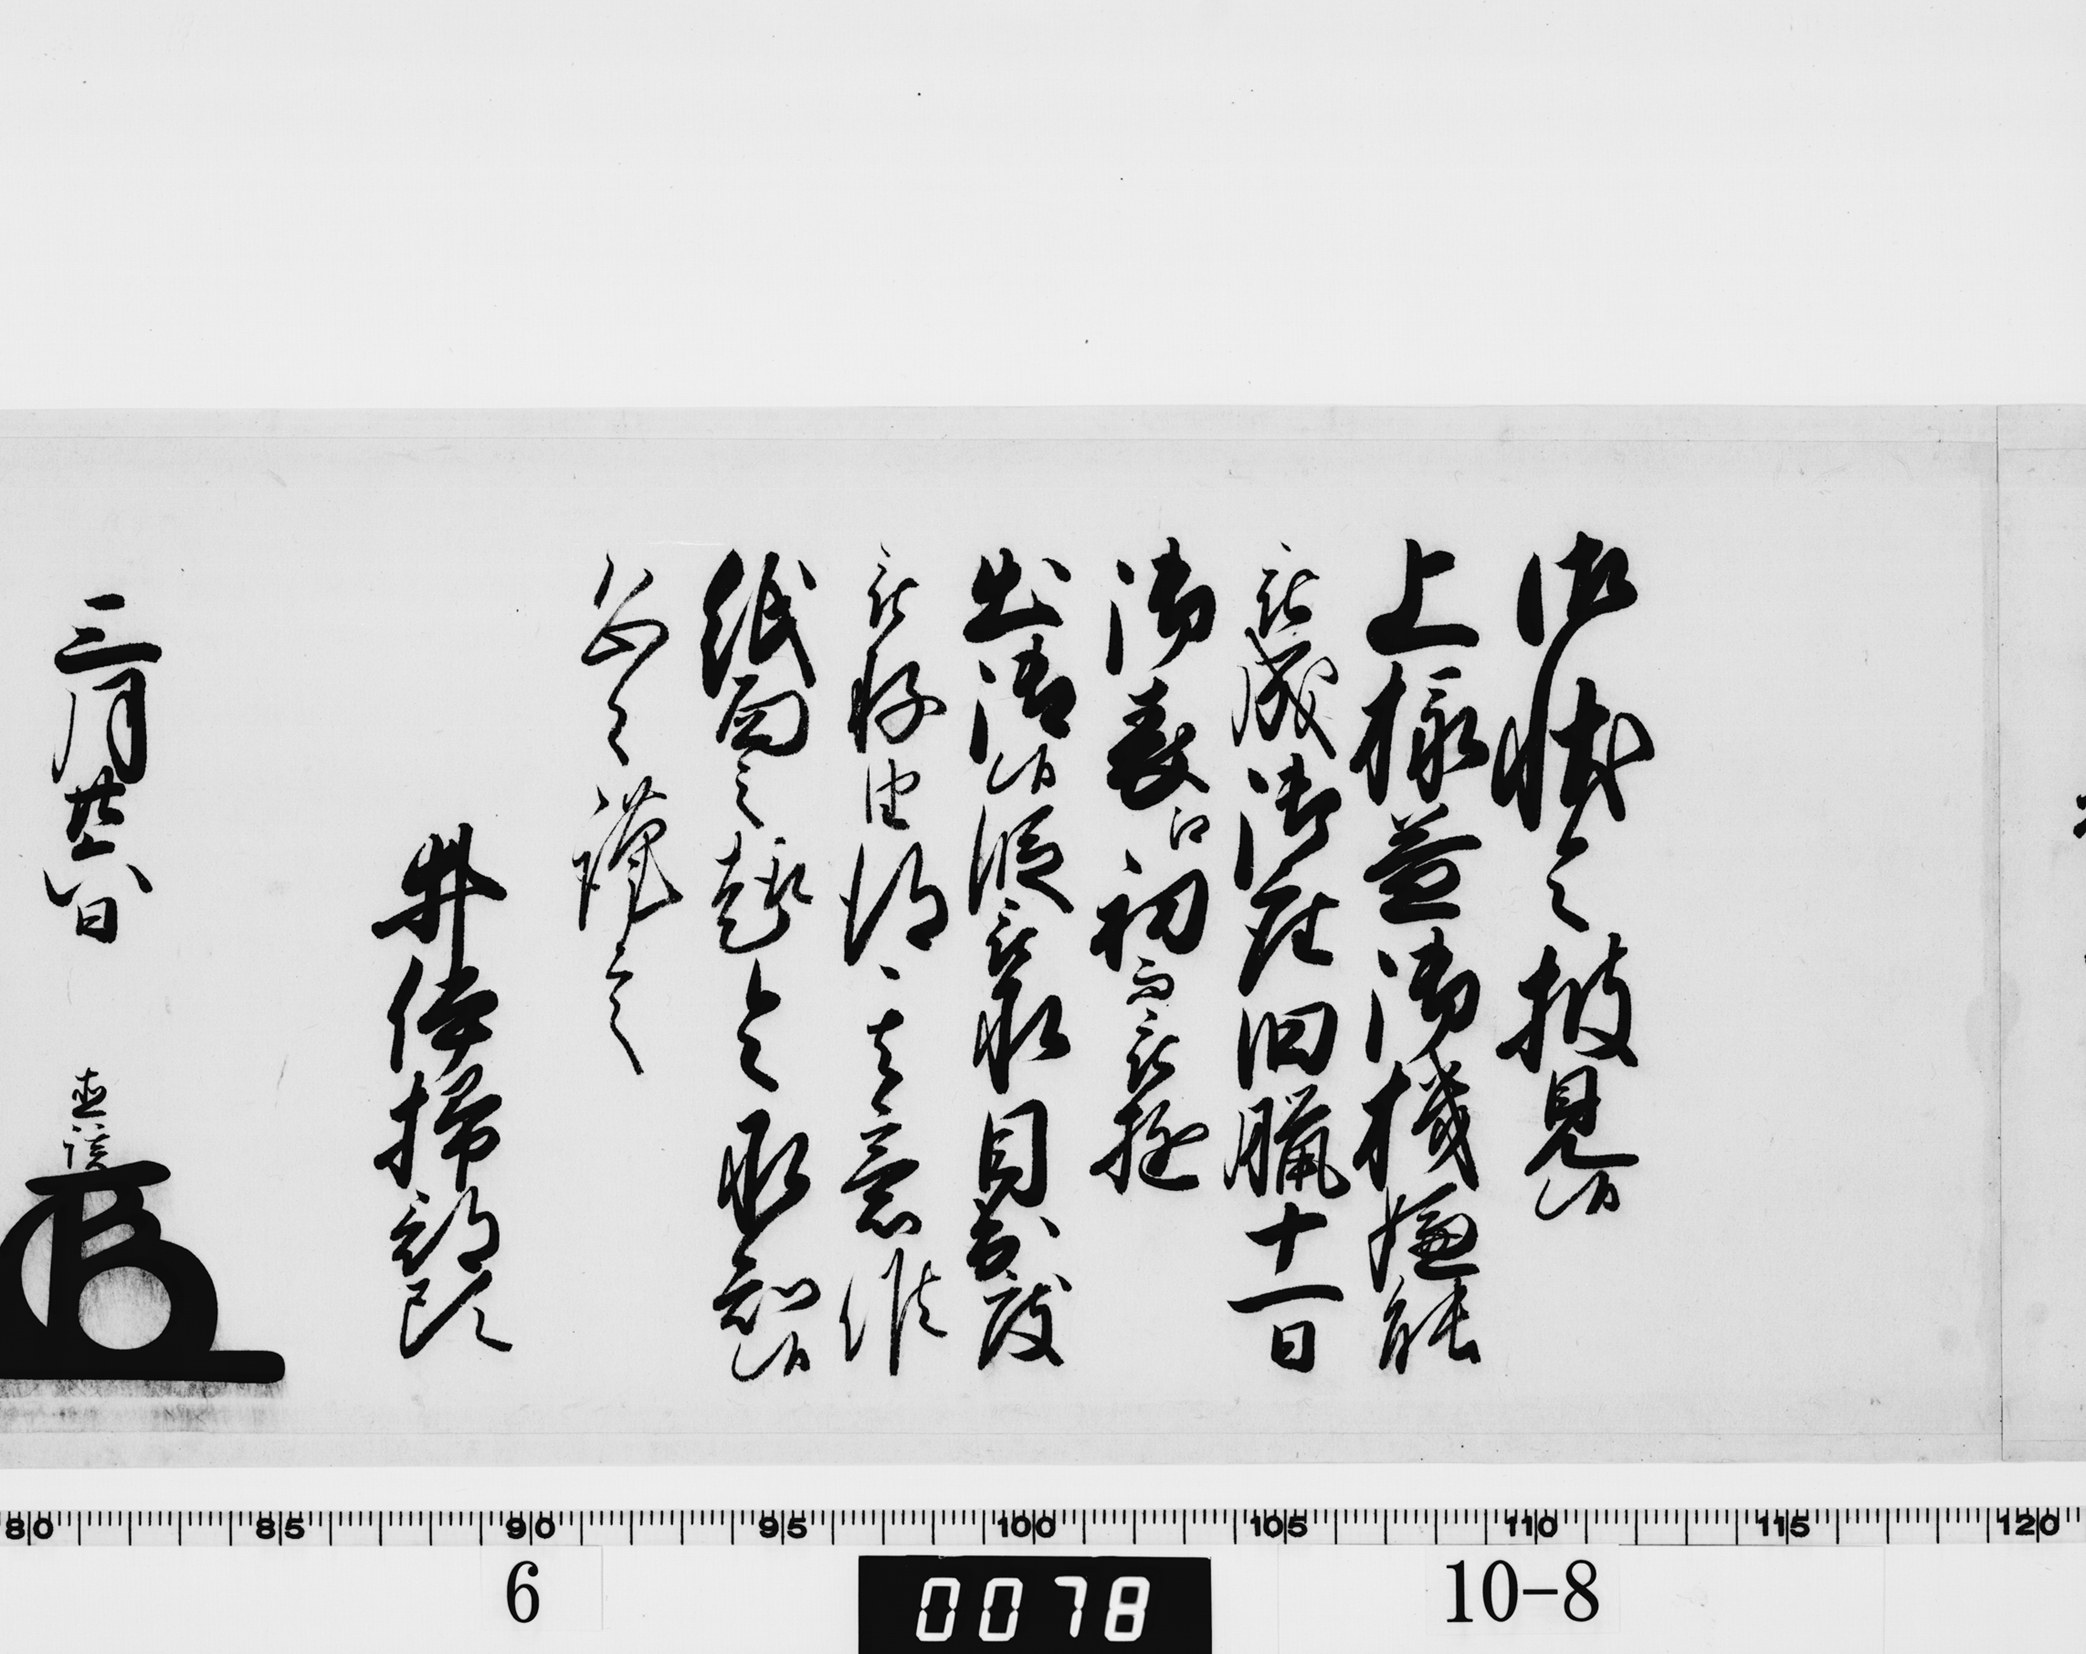 御状令披見候
上様益御機嫌能
被成御座旧臘十一日
御表江初而被遊
出御候段被承目出度
被存由得其意候
紙面之趣令承知候
恐々謹言
井伊掃部頭
三月廿六日
80 85 90 95 100 105 110 115 120
6
0078
10-8